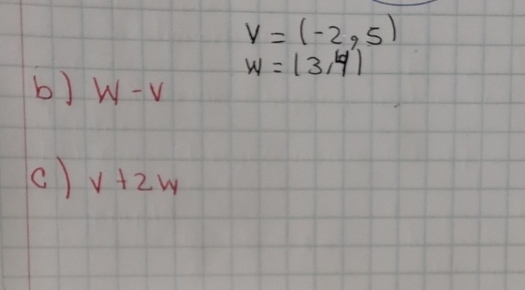 V = (-2, 5)
W = (3, 4)
b) W - V
c) V + 2W